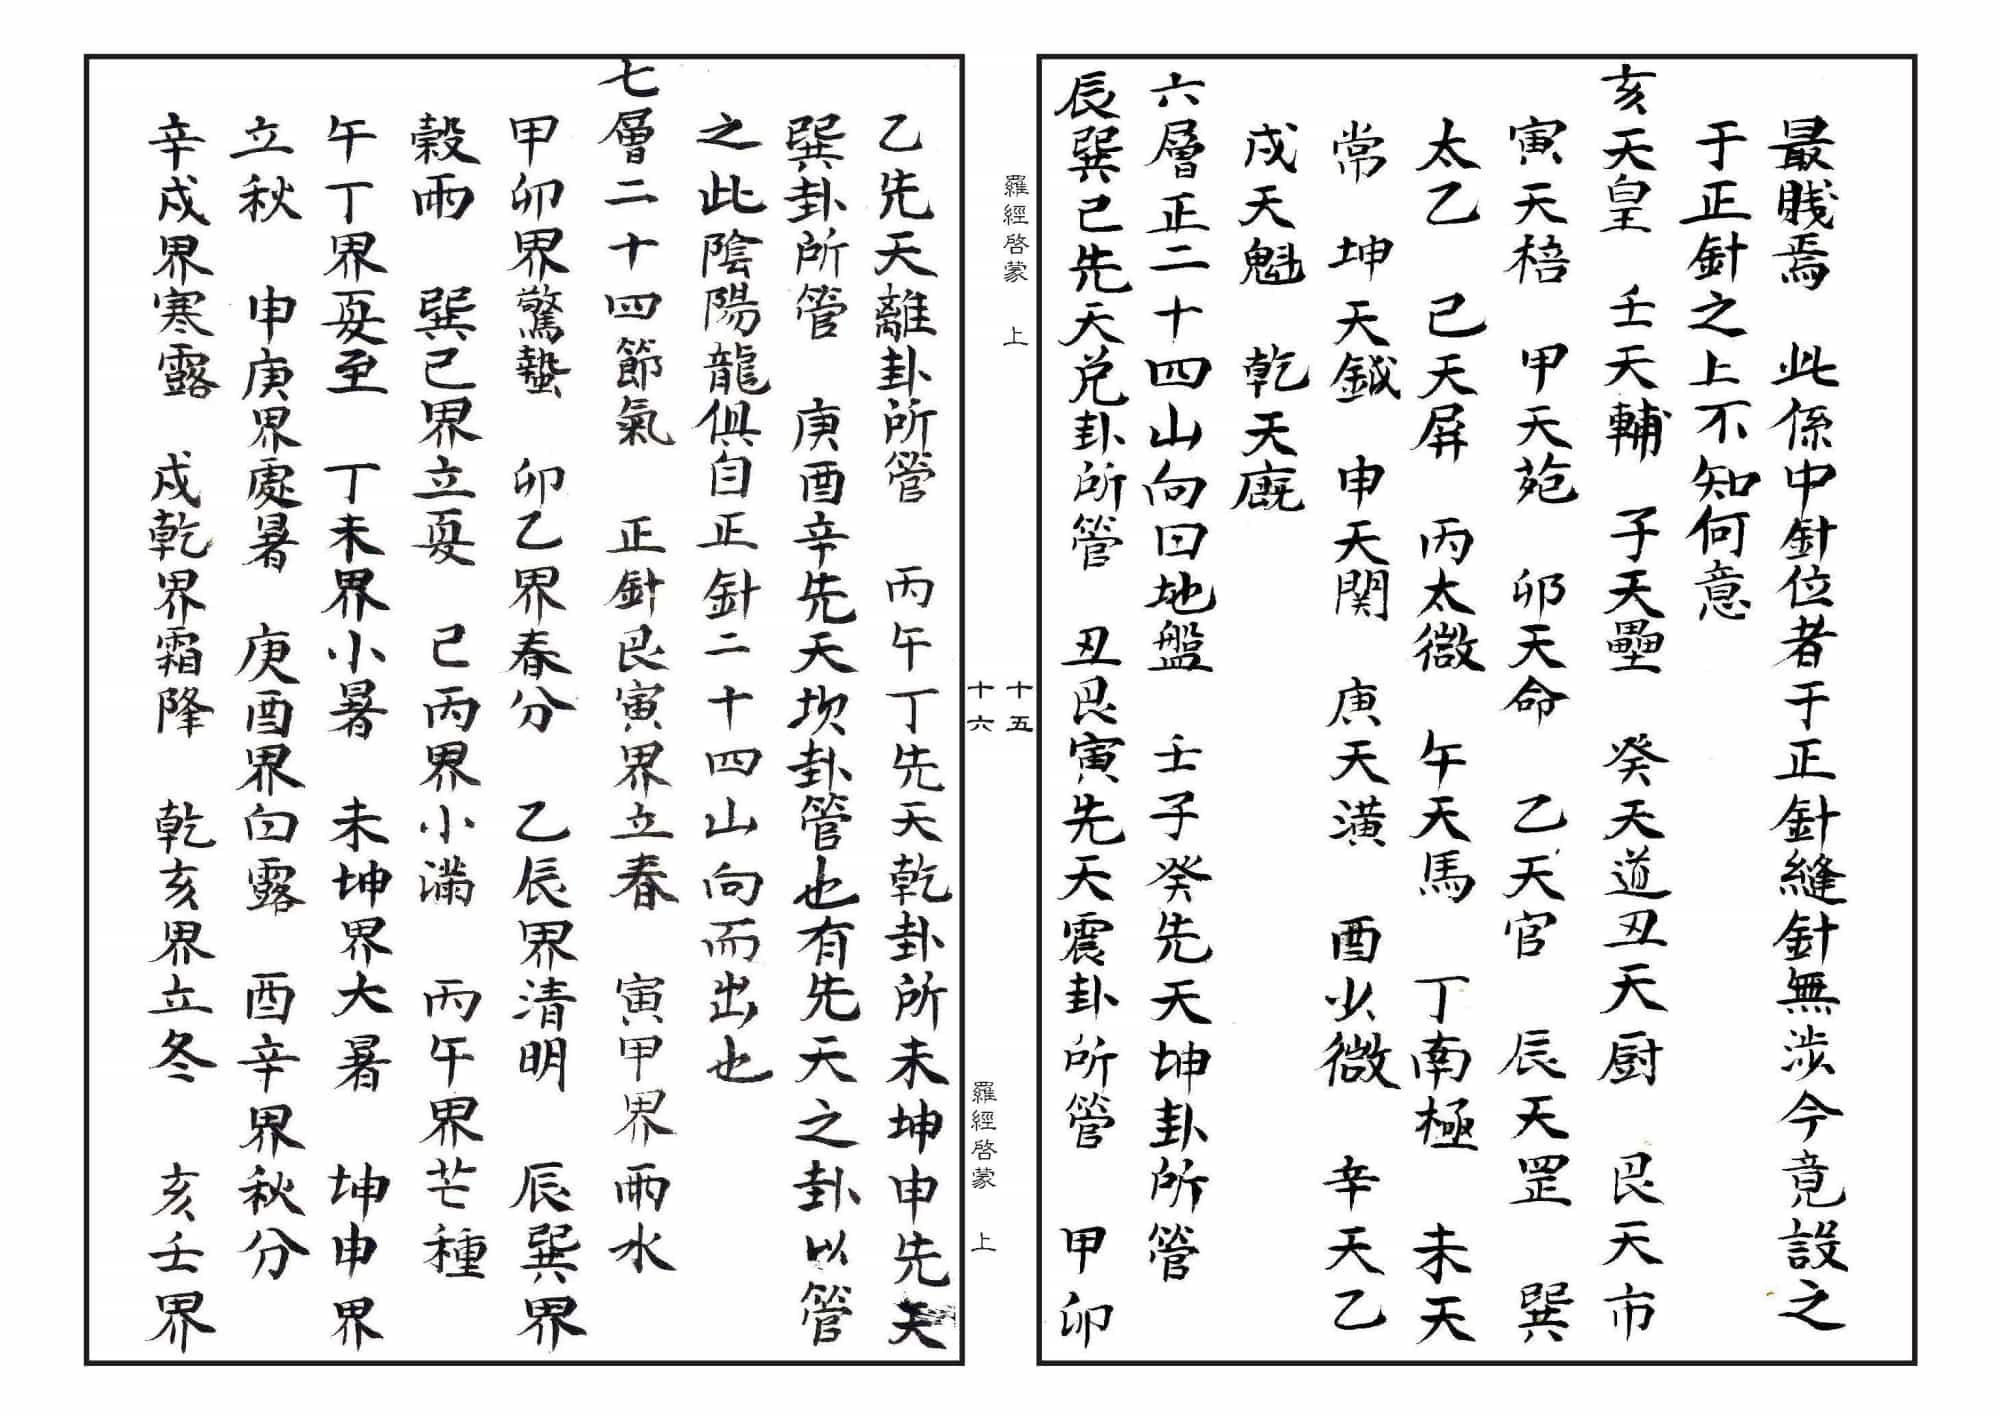 最賤焉　此係中針位者于正針縫針無涉今竟設之
于正針之上不知何意
亥天皇　壬天輔　子天壘　癸天道丑天厨　艮天市
寅天棓　甲天苑　卯天命　乙天官　辰天罡　巽
太乙　巳天屏　丙太微　午天馬　丁南極　未天
常　坤天鉞　申天関　庚天潢　酉少微　辛天乙
戌天魁　乾天廐
六層正二十四山向曰地盤　壬子癸先天坤卦所管
辰巽巳先天兑卦所管　丑艮寅先天震卦所管　甲卯
羅經啓蒙　上
十五
乙先天離卦所管　丙午丁先天乾卦所未坤申先天
巽卦所管　庚酉辛先天坎卦管也有先天之卦以管
之此陰陽龍俱自正針二十四山向而出也
七層二十四節氣　正針艮寅界立春　寅甲界雨水
甲卯界驚蟄　卯乙界春分　乙辰界清明　辰巽界
穀雨　巽巳界立夏　巳丙界小滿　丙午界芒種
午丁界夏至　丁未界小暑　未坤界大暑　坤申界
立秋　申庚界處暑　庚酉界白露　酉辛界秋分
辛戌界寒露　戌乾界霜降　乾亥界立冬　亥壬界
十六
羅經啓蒙　上